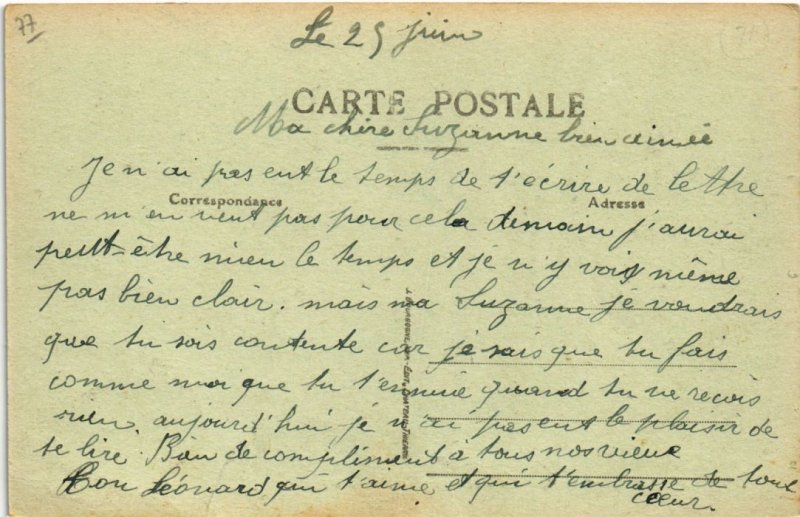 77
Le 25 juin
CARTE POSTALE
Ma chère Suzanne bien aimée
Je n'ai pas eut le temps de t'écrire de lettre
Correspondance
Adresse
ne m'en veut pas pour cela demain j'aurai
peut-être mieu le temps et je n'y vois même
pas bien clair. mais ma Suzanne je voudrais
que tu sois contente car je sais que tu fais
comme moi que tu t'ennuie quand tu ne recois
rien aujourd'hui je n'ai pas eut le plaisir de
te lire. Bien de compliment à tous nos vieux
Ton Léonard qui t'aime et qui t'embrasse de tout
cœur.